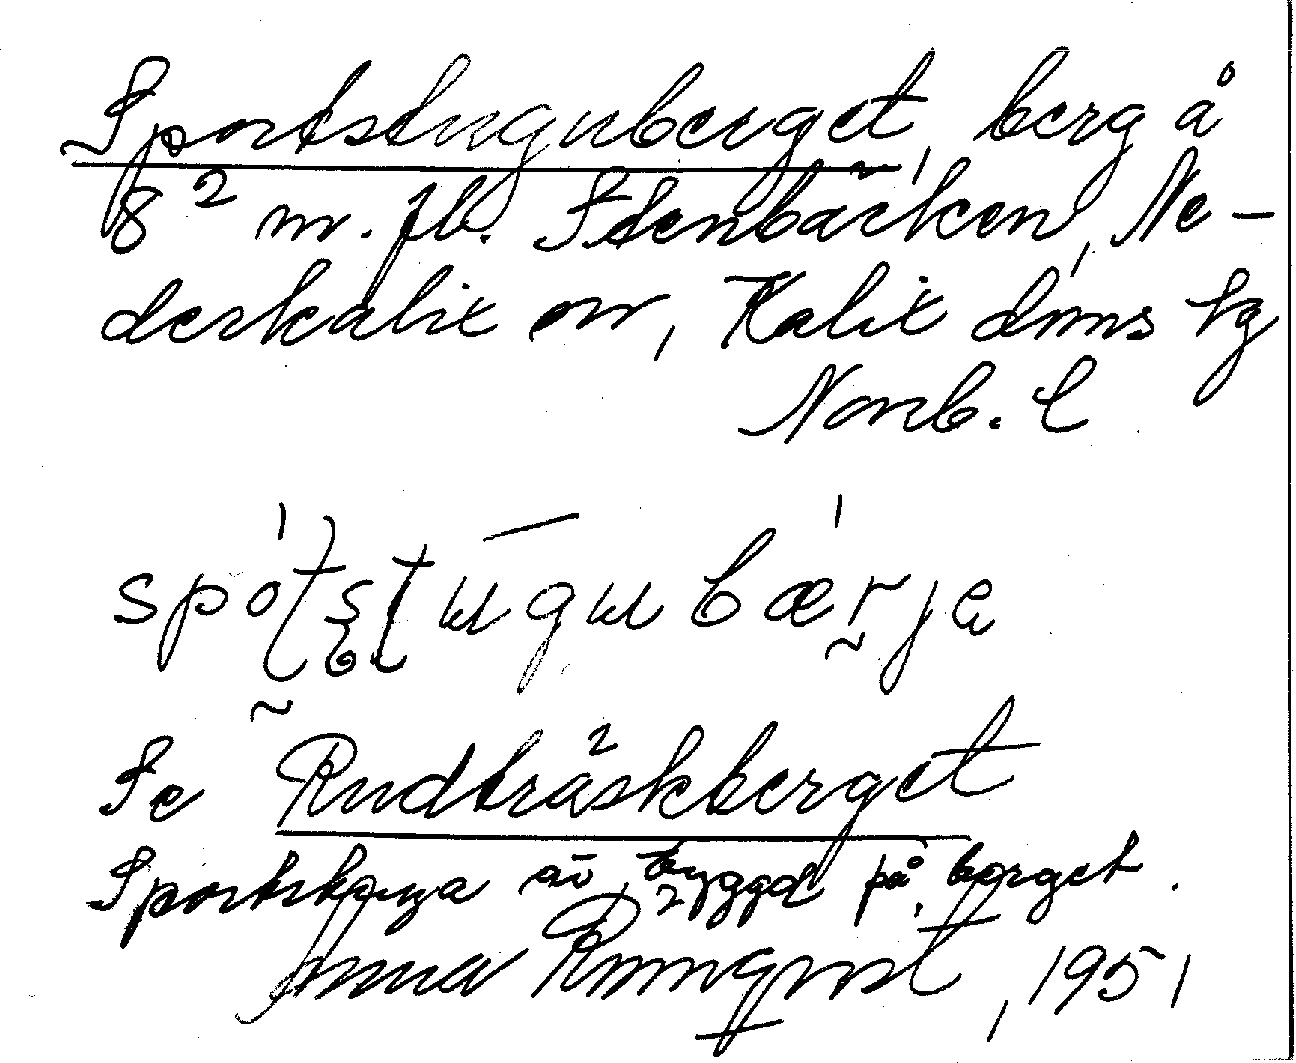 Sportstuguberget, berg å
8² m. fb. Stenbäcken, Ne-
derkalix sn, Kalix dmns tg
Norrb. l
spó̩ʈʂʈugubær̥jɐ
Se Rudträskberget
Sportstuga är byggd på berget.
Anna Rönnqvist, 1951